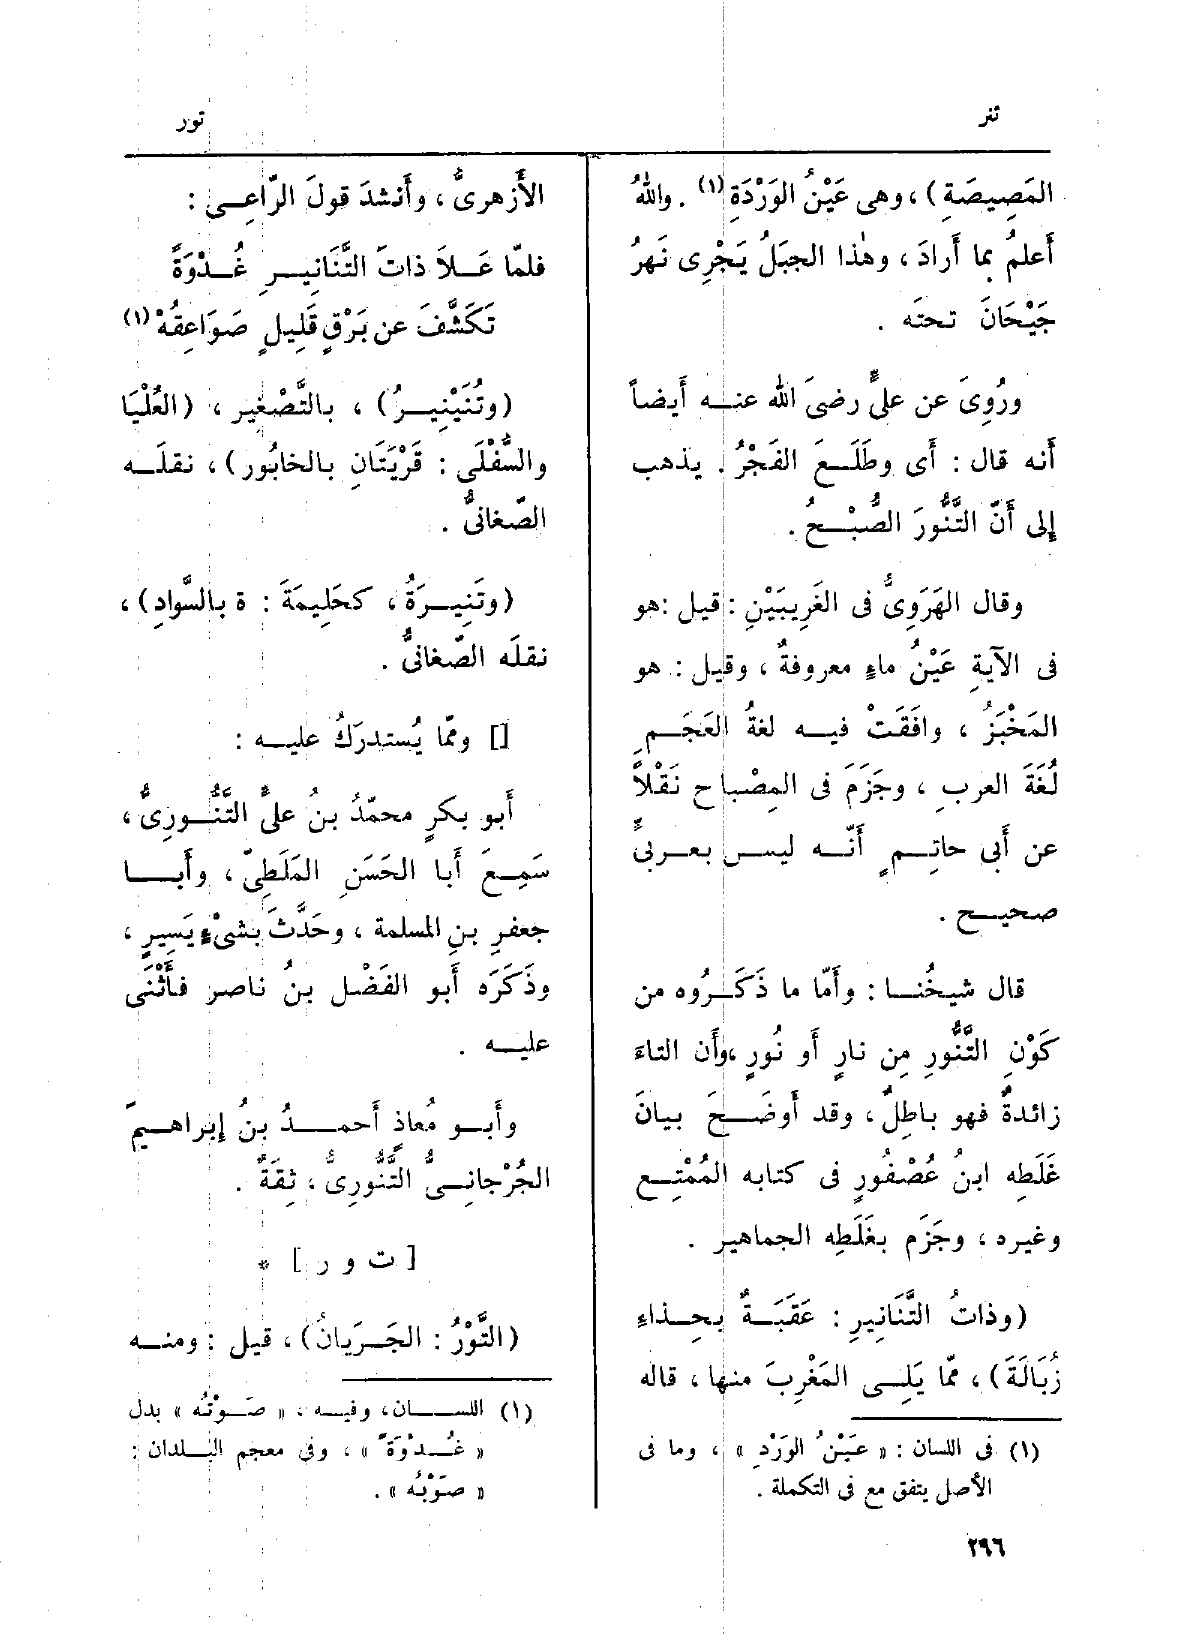 تنر
تور
المَصِيصَةِ) ، وهى عَيْنُ الوَرْدَةِ (١) . واللهُ
أَعلمُ بما أَرادَ ، وهٰذا الجبَلُ يَجْرِى نَهرُ
جَيْحَانَ تحتَه .
ورُوِىَ عن علىٍّ رضىَ الله عنه أَيضاً
أَنه قال : أَى وطَلَعَ الفَجْرُ . يذهب
إِلى أَنّ التَّنُّورَ الصُّبْحُ .
وقال الهَرَوِىُّ فى الغَرِيبَيْنِ : قيل : هو
فى الآيةِ عَيْنُ ماءٍ معروفةٌ ، وقيل : هو
المَخْبَزُ ، وافَقَتْ فيه لغةُ العَجَمِ
لُغَةَ العربِ ، وجَزَمَ فى المِصْباحِ نَقْلاً
عن أَبى حاتِمٍ أَنَّه ليس بعربىٍّ
صحيح .
قال شيخُنا : وأَمّا ما ذَكَرُوه من
كَوْنِ التَّنُّورِ مِن نارٍ أَو نُورٍ ، وأَن التاءَ
زائدةٌ فهو باطِلٌ ، وقد أَوضَحَ بيانَ
غَلَطِه ابنُ عُصْفُورٍ فى كتابه المُمْتِع
وغيره ، وجَزَم بغَلَطِه الجماهير .
(وذاتُ التَّنَانِيرِ : عَقَبَةٌ بِحِذاءِ
زُبَالَةَ) ، ممّا يَلِى المَغْرِبَ منها ، قاله
(١) فى اللسان : « عَيْنُ الوَرْدِ » ، وما فى
الأصل يتفق مع فى التكملة .
الأَزهرىُّ ، وأَنشدَ قولَ الرّاعِى :
فلمّا عَلاَ ذاتَ التَّنَانِيرِ غُدْوَةً
تَكَشَّفَ عن بَرْقٍ قَلِيلٍ صَوَاعِقُهْ (١)
(وتُنَيْنِيرُ) ، بالتَّصْغِير ، (العُلْيَا
والسُّفْلَى : قَرْيَتَانِ بالخابُور) ، نقلَه
الصّغانىُّ .
(وتَنِيرَةُ ، كحَلِيمَةَ : ة بالسَّوادِ) ،
نقلَه الصّغانىُّ .
[] وممّا يُستدرَكُ عليه :
أَبو بكرٍ محمّدُ بنُ علىٍّ التَّنُّورِىُّ ،
سَمِعَ أَبا الحَسَنِ المَلَطِىّ ، وأَبا
جعفرِ بنِ المسلمة ، وحَدَّثَ بشىْءٍ يَسِيرٍ ،
وذَكَرَه أَبو الفَضْل بنُ ناصر فأَثْنَى
عليه .
وأَبو مُعاذٍ أَحمدُ بنُ إِبراهيمَ
الجُرْجانِىُّ التَّنُّورِىُّ ، ثِقَةٌ .
[ ت و ر ] *
(التَّوْرُ : الجَرَيانُ) ، قيل : ومنه
(١) اللسان، وفيه ، « صَوْتُه » بدل
« غُدْوَةً » ، وفي معجم البلدان :
« صَوْبُه » .
٢٩٦